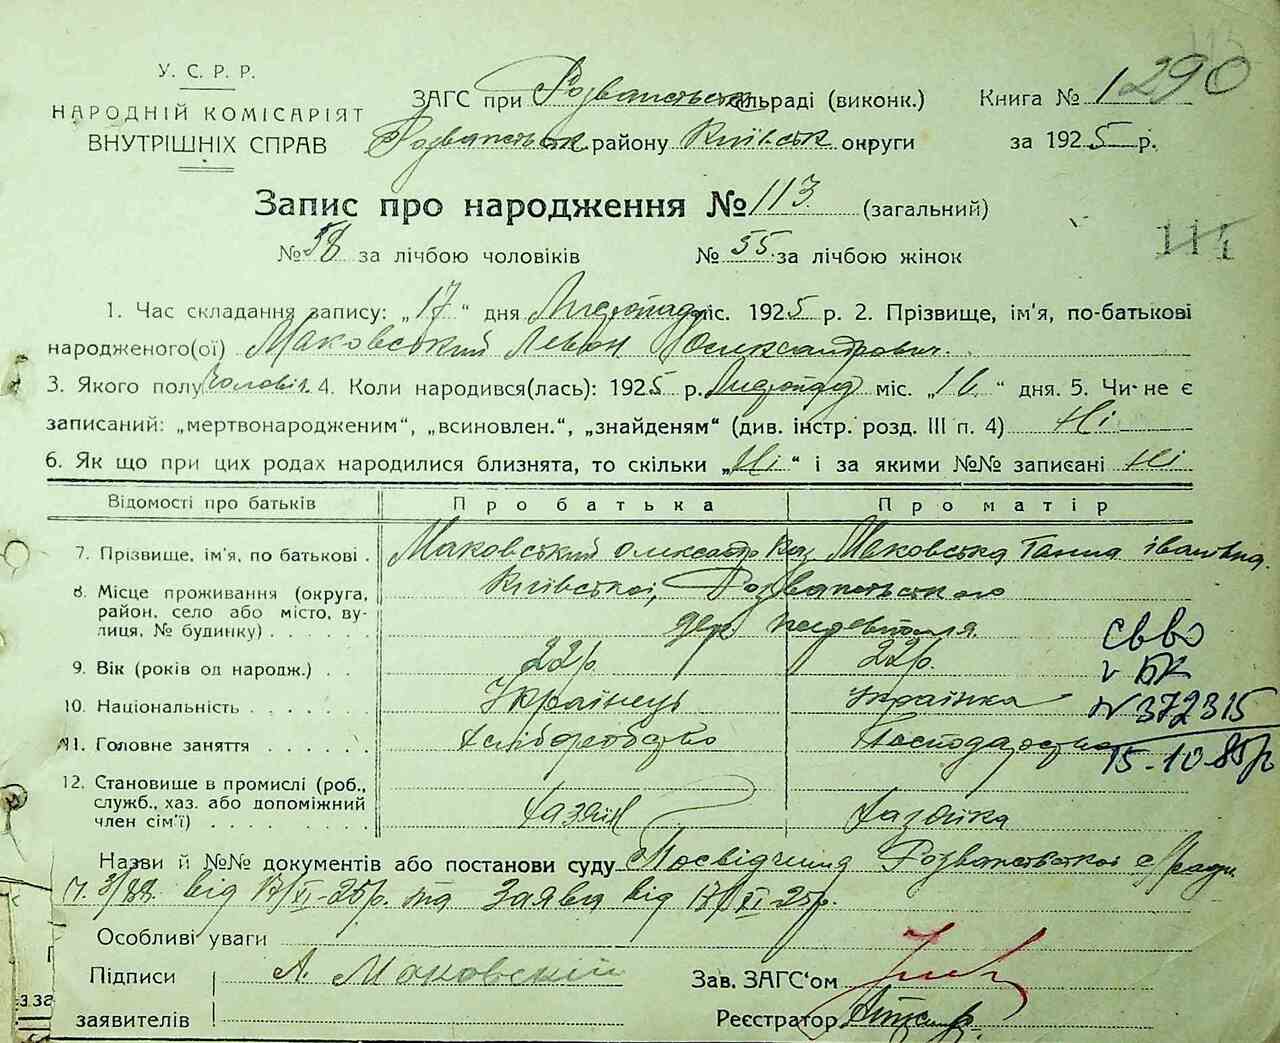 У. С. Р. Р.
НАРОДНІЙ КОМІСАРІЯТ
ВНУТРІШНІХ СПРАВ
ЗАГС при Розважськ сільраді (виконк.)
Книга № 1 290
Розважськ району Київськ округи
за 1925 р.
Запис про народження № 113 (загальний)
114
№ 58 за лічбою чоловіків № 55 за лічбою жінок
1. Час складання запису: „17“ дня Листопад міс. 1925 р. 2. Прізвище, ім'я, по-батькові
народженого(ої) Маковський Левон Олександрович.
3. Якого полу чоловіч. 4. Коли народився(лась): 1925 р. Листопад міс. „16“ дня. 5. Чи не є
записаний: „мертвонародженим“, „всиновлен.“, „знайденям“ (див. інстр. розд. III п. 4) Ні
6. Як що при цих родах народилися близнята, то скільки „Ні“ і за якими №№ записані Ні
Відомості про батьків Про батька Про матір
7. Прізвище, ім'я, по батькові . Маковський Олександр Маковська Ганна Іванівна
8. Місце проживання (округа, Київської, Розважського
район, село або місто, ву-
лиця, № будинку) . . . . . дер.
9. Вік (років од народж.) . . 22 р. 22 р.
10. Національність . . . . . Українець Українка
11. Головне заняття . . . . . Хліборобство Господарство
12. Становище в промислі (роб.,
служб., хаз. або допоміжний
член сім'ї) . . . . . . . . Хазяїн Хазяйка
СВВО
V БК
№372315
15-10-85р
Назви й №№ документів або постанови суду Посвідчення Розважської с/ради
ч. 3/88 від 17/XI-25р. та Заява від 17/XI-25р.
Особливі уваги
Підписи А. Маковский Зав. ЗАГС'ом
заявителів Реєстратор